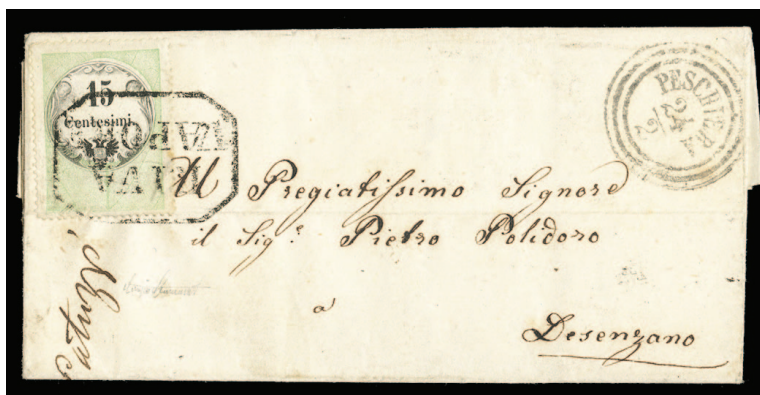 15
Centesimi
VAPORE
RIVA
PESCHIERA
24
2
Al Pregiatissimo Signore
il Sig.e Pietro Polidoro
a
Desenzano